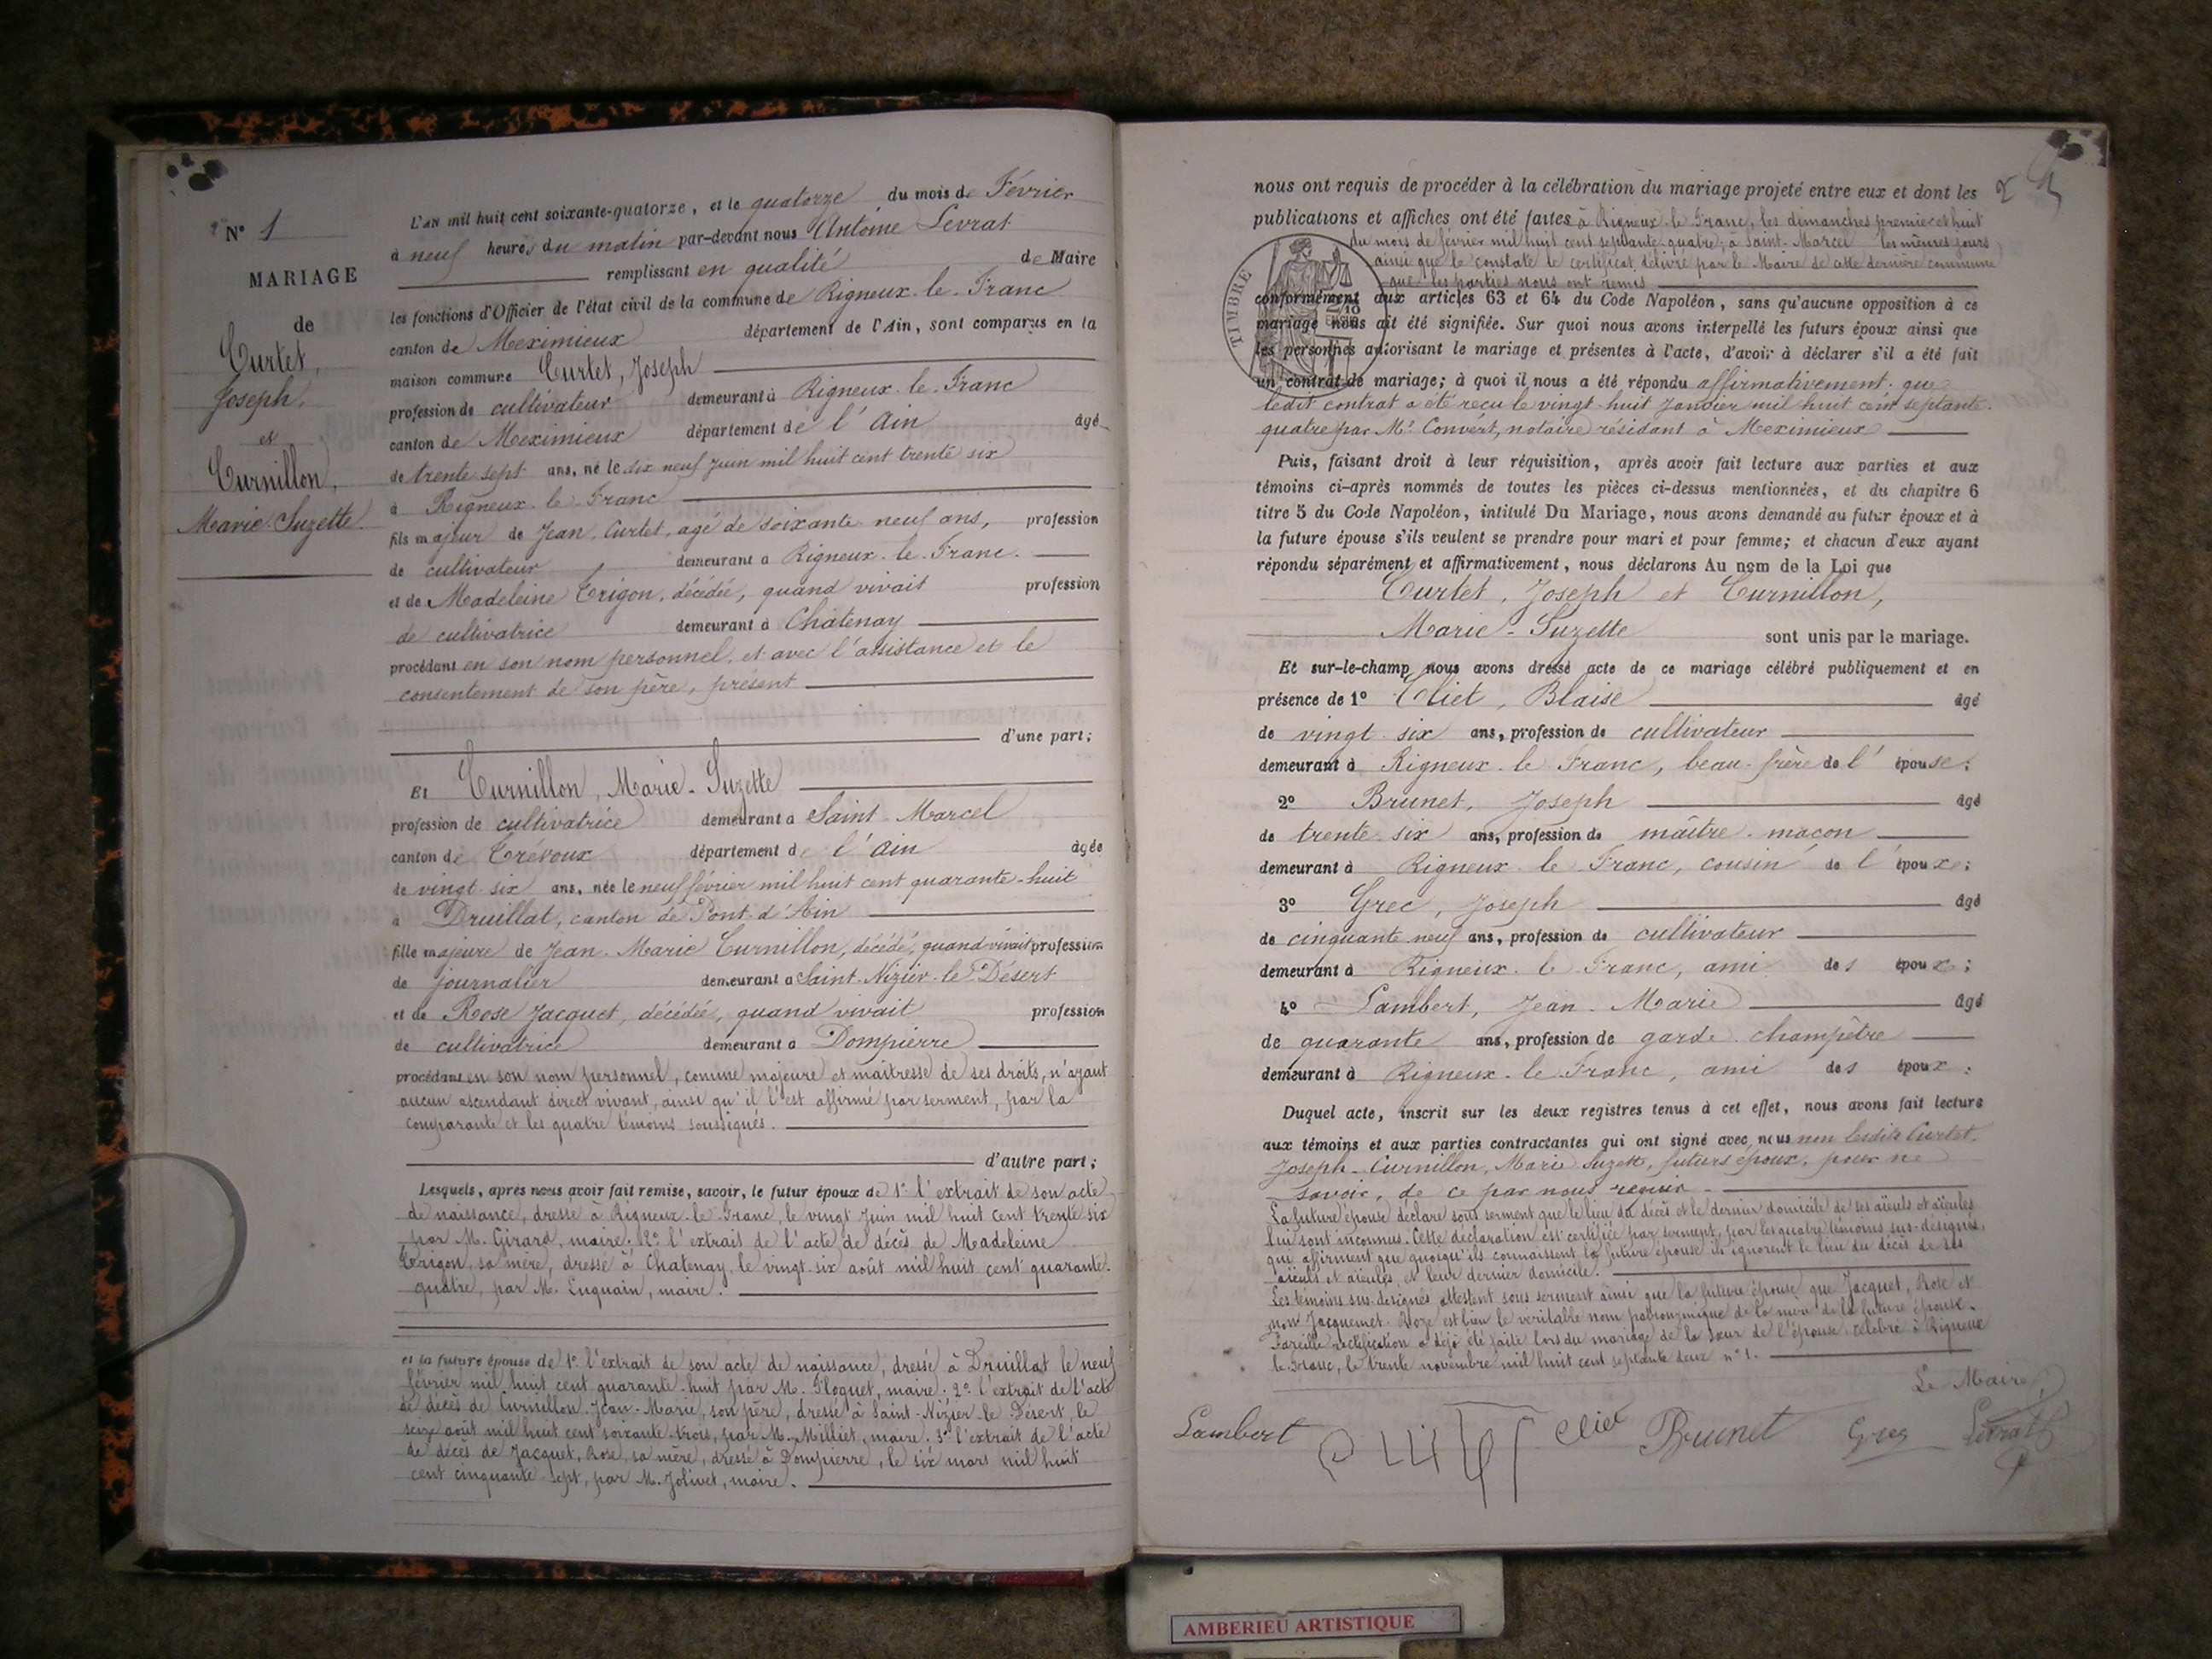 N° 1
MARIAGE
de
Curtet,
Joseph,
et
Curnillon,
Marie-Suzette.
L'AN mil huit cent soixante-quatorze, et le quatorze du mois de Février
à neuf heures du matin par-devant nous Antoine Levrat
remplissant en qualité de Maire
les fonctions d'Officier de l'état civil de la commune de Rigneux-le-Franc
canton de Meximieux département de l'Ain, sont comparus en la
maison commune Curtet, Joseph
profession de cultivateur demeurant à Rigneux-le-Franc
canton de Meximieux département de l'Ain âgé
de trente sept ans, né le dix neuf Juin mil huit cent trente six
à Rigneux-le-Franc
fils majeur de Jean Curtet, agé de soixante neuf ans, profession
de cultivateur, demeurant à Rigneux-le-Franc.
et de Madeleine Trigon, décédée, quand vivait profession
de cultivatrice demeurant à Châtenay
procédant en son nom personnel, et avec l'assistance et le
consentement de son père, présent
d'une part;
Et Curnillon, Marie-Suzette
profession de cultivatrice demeurant à Saint-Marcel
canton de Trévoux département de l'Ain âgée
de vingt-six ans, née le neuf février mil huit cent quarante-huit
à Druillat, canton de Pont-d'Ain
fille majeure de Jean-Marie Curnillon, décédé, quand vivait profession
de journalier demeurant à Saint-Nizier-le-Désert
et de Rose Jacquet, décédée, quand vivait profession
de cultivatrice demeurant à Dompierre
procédant en son nom personnel, comme majeure et maîtresse de ses droits, n'ayant
aucun ascendant direct vivant, ainsi qu'il l'est affirmé par serment, par la
comparante et les quatre témoins soussignés.
d'autre part;
Lesquels, après nous avoir fait remise, savoir, le futur époux de 1° l'extrait de son acte
de naissance, dressé à Rigneux-le-Franc, le vingt Juin mil huit cent trente six
par M. Girard, maire; 2° l'extrait de l'acte de décès de Madeleine
Trigon, sa mère, dressé à Chatenay, le vingt-six août mil huit cent quarante-
quatre, par M. Luquain, maire.
et la future épouse de 1° l'extrait de son acte de naissance, dressé à Druillat le neuf
février mil huit cent quarante-huit par M. Floquet, maire; 2° l'extrait de l'acte
de décès de Curnillon Jean-Marie, son père, dressé à Saint-Nizier-le-Désert, le
seize août mil huit cent soixante-trois, par M. Milliet, maire; 3° l'extrait de l'acte
de décès de Jacquet, Rose, sa mère, dressé à Dompierre, le six mars mil huit
cent cinquante-sept, par M. Jolivet, maire.
2
nous ont requis de procéder à la célébration du mariage projeté entre eux et dont les
publications et affiches ont été faites à Rigneux-le-Franc, les dimanches premier et huit
du mois de février mil huit cent septante-quatre, à Saint-Marcel les mêmes jours
ainsi que le constate le certificat délivré par le Maire de cette dernière commune
que les parties nous ont remis
TIMBRE
conformément aux articles 63 et 64 du Code Napoléon, sans qu'aucune opposition à ce
mariage nous ait été signifiée. Sur quoi nous avons interpellé les futurs époux ainsi que
les personnes autorisant le mariage et présentes à l'acte, d'avoir à déclarer s'il a été fait
un contrat de mariage; à quoi il nous a été répondu affirmativement, que
ledit contrat a été reçu le vingt-huit Janvier mil huit cent septante-
quatre par Me Convert, notaire résidant à Meximieux
Puis, faisant droit à leur réquisition, après avoir fait lecture aux parties et aux
témoins ci-après nommés de toutes les pièces ci-dessus mentionnées, et du chapitre 6
titre 5 du Code Napoléon, intitulé Du Mariage, nous avons demandé au futur époux et à
la future épouse s'ils veulent se prendre pour mari et pour femme; et chacun d'eux ayant
répondu séparément et affirmativement, nous déclarons Au nom de la Loi que
Curtet, Joseph et Curnillon,
Marie-Suzette sont unis par le mariage.
Et sur-le-champ nous avons dressé acte de ce mariage célébré publiquement et en
présence de 1° Cliet, Blaise âgé
de vingt-six ans, profession de cultivateur
demeurant à Rigneux-le-Franc, beau-frère de l'épouse;
2° Brunet, Joseph âgé
de trente-six ans, profession de maître-maçon
demeurant à Rigneux-le-Franc, cousin de l'époux;
3° Grec, Joseph âgé
de cinquante neuf ans, profession de cultivateur
demeurant à Rigneux-le-Franc, ami des époux;
4° Lambert, Jean-Marie âgé
de quarante ans, profession de garde-champêtre
demeurant à Rigneux-le-Franc, ami des époux;
Duquel acte, inscrit sur les deux registres tenus à cet effet, nous avons fait lecture
aux témoins et aux parties contractantes qui ont signé avec nous non lesdits Curtet,
Joseph-Curnillon, Marie Suzette, futurs époux, pour ne
savoir, de ce par nous requis.
La future épouse déclare sous serment que le lieu du décès et le dernier domicile de ses aïeuls et aïeules
lui sont inconnus. Cette déclaration est certifiée par serment, par les quatre témoins sus-désignés,
qui affirment que quoiqu'ils connaissent la future épouse ils ignorent le lieu du décès de ses
aïeuls et aïeules, et leur dernier domicile.
Les témoins sus-désignés attestent sous serment ainsi que la future épouse, que Jacquet, Rose et
non Jacquemet Roze est bien le véritable nom patronymique de la mère de la future épouse.
Pareille rectification a déjà été faite lors du mariage de la sœur de l'épouse, célébré à Rigneux
le-Franc, le trente novembre mil huit cent septante deux n° 1.
Le Maire
Lambert Cliet Brunet Grec Levrat
AMBERIEU ARTISTIQUE